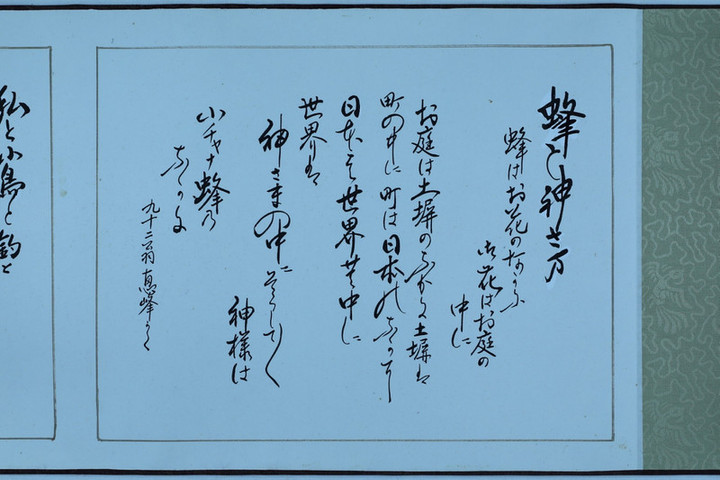 蜂と神さま
蜂はお花のなかに
お花はお庭の
中に
お庭は土塀のなかに土塀は
町の中に町は日本のなかに
日本は世界の中に
世界は
神さまの中に
神様は
小チャナ蜂の
なかに
九十二翁 真峰かく
私と小鳥と鈴と